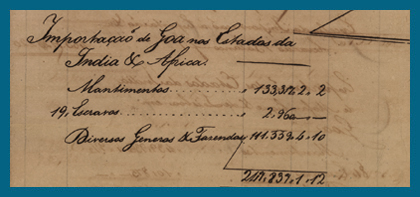 Importação de Goa nas Estados da
India & Africa.
Mantimentos ........ 133,337.2.2
19, Escravos ........ 2.960
Diversos Generos & Fazendas 111.539.4.10
247.837.1.12